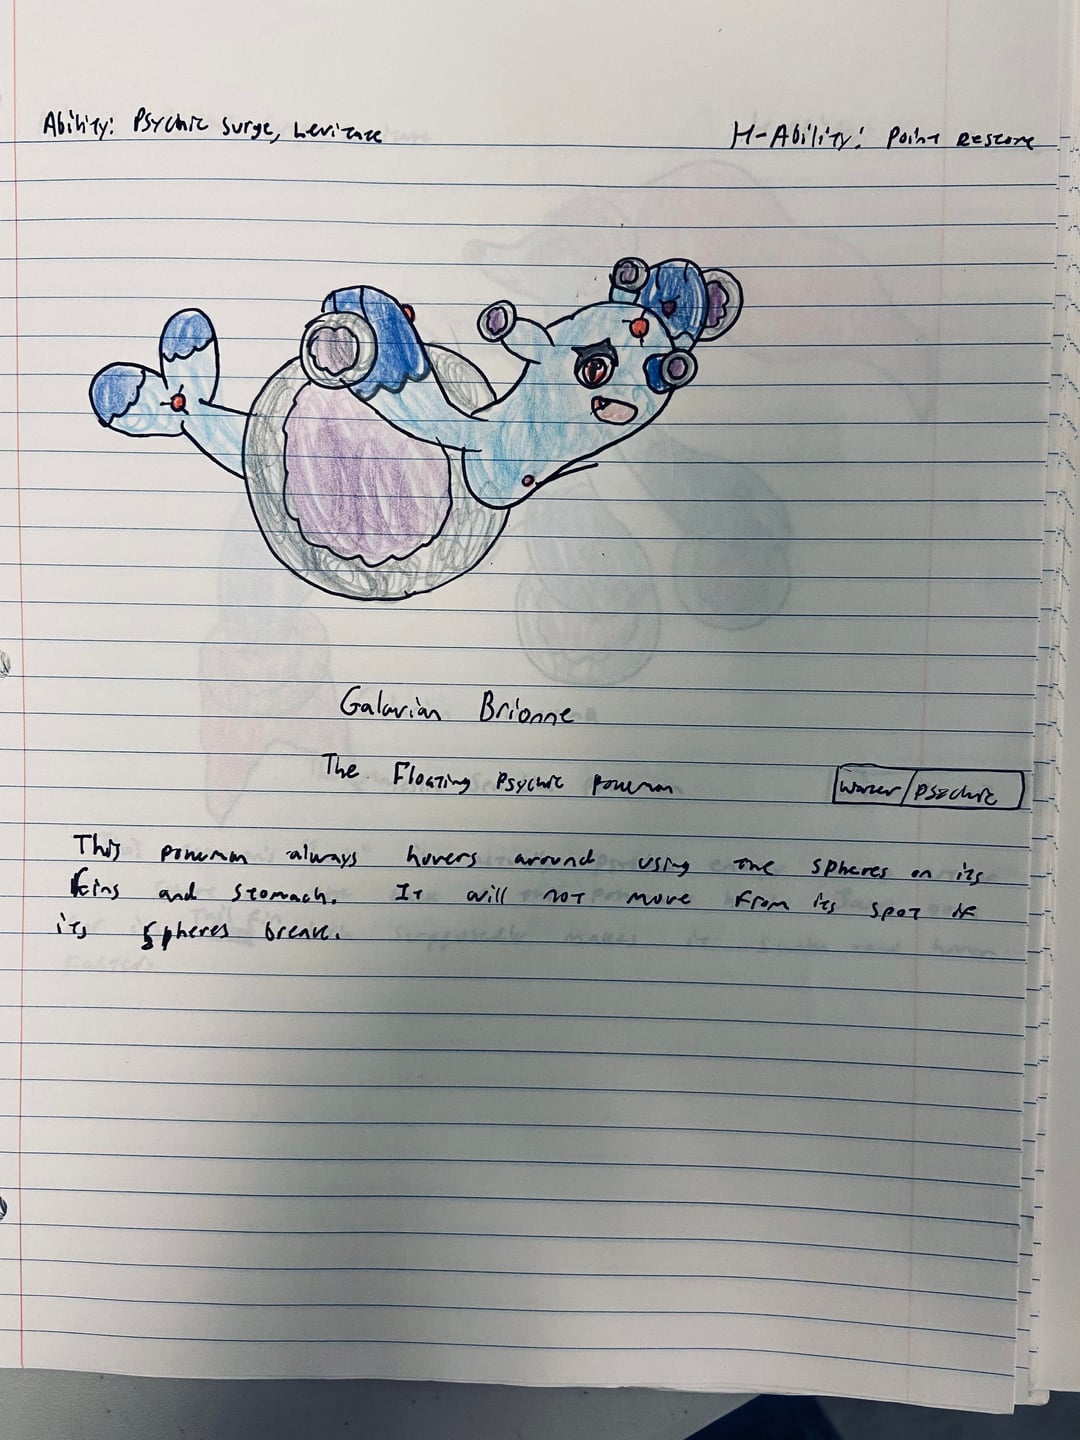 Ability: Psychic Surge, Levitate
H-Ability: Point Restore
Galarian Brionne
The Floating Psychic Pokemon
Water/Psychic
This pokemon always hovers around using the spheres on its
fins and stomach. It will not move from its spot if
its spheres break.